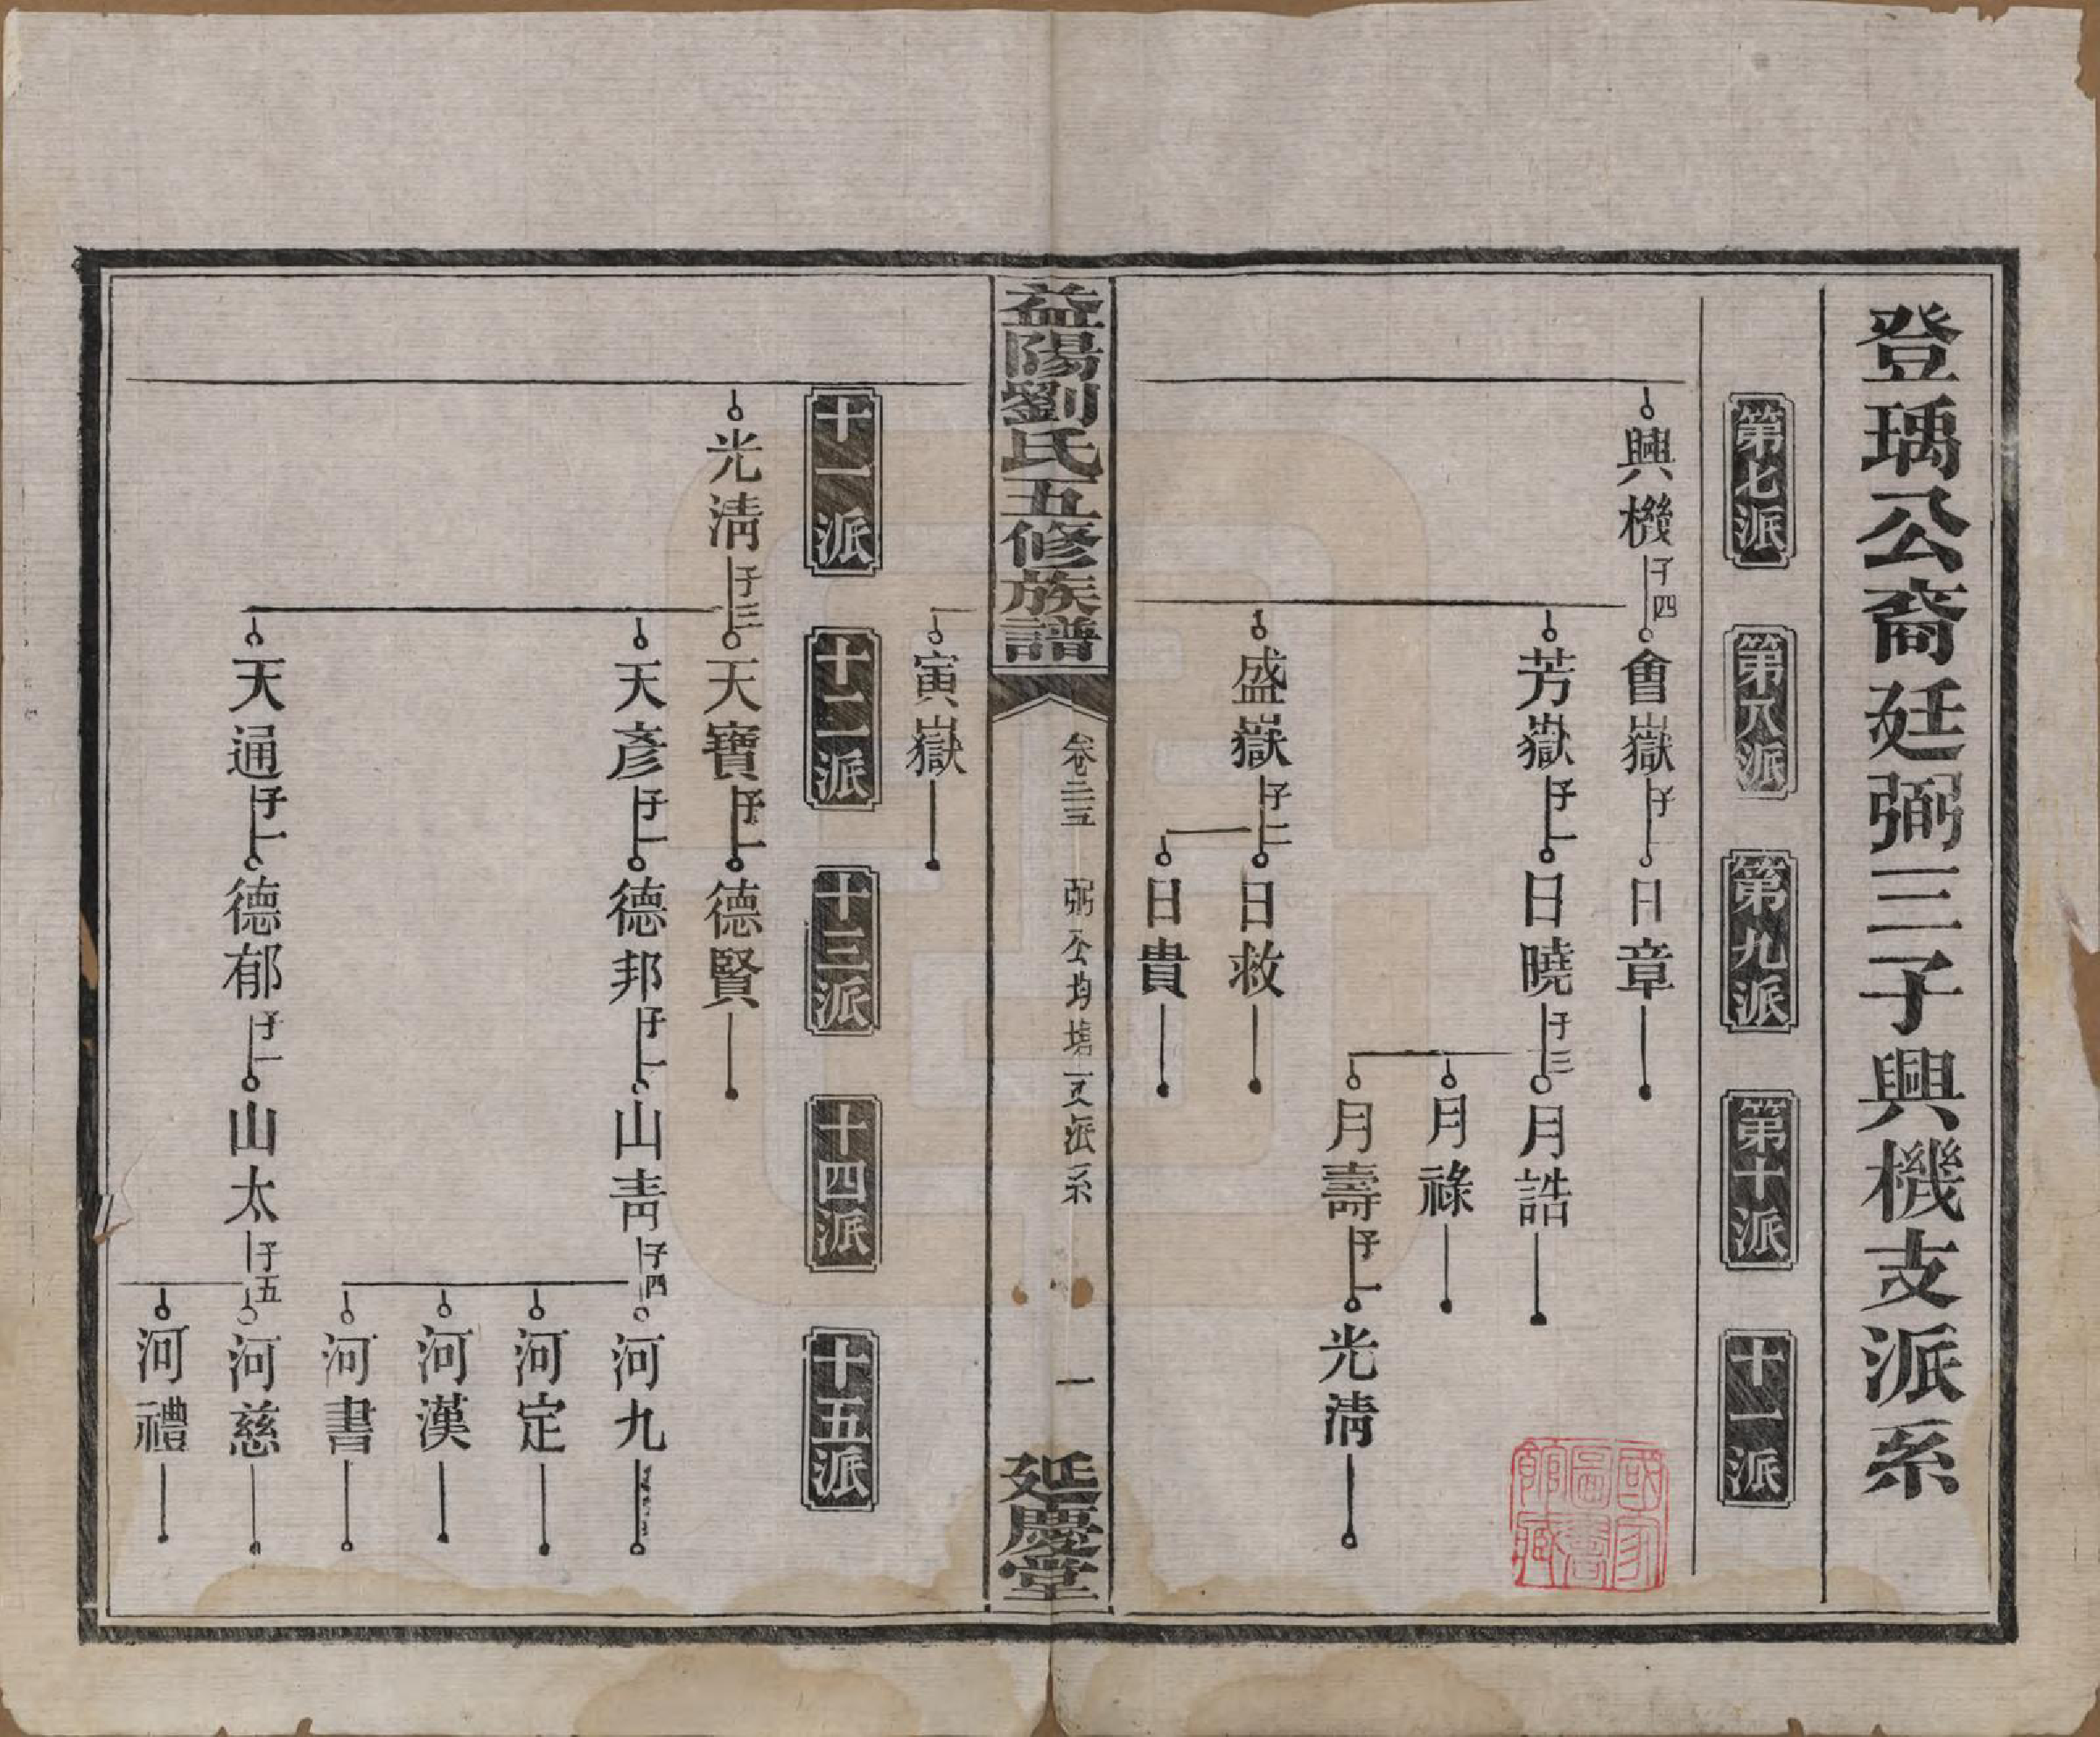 登瑀公裔廷弼三子興機支派系
第七派
第八派
第九派
第十派
十一派
興機 子四
會嶽 子一
日章
芳嶽 子一
日曉 子三
月誥
月祿
月壽 子一
光淸
盛嶽 子二
日救
日貴
國家圖書館藏
益陽劉氏五修族譜
卷三五
弼公均 支派系
一
延慶堂
寅嶽
十一派
十二派
十三派
十四派
十五派
光淸 子三
天寶 子一
德賢
天彥 子一
德邦 子一
山靑 子四
河九
河定
河漢
河書
天通 子一
德郁 子一
山太 子五
河慈
河禮